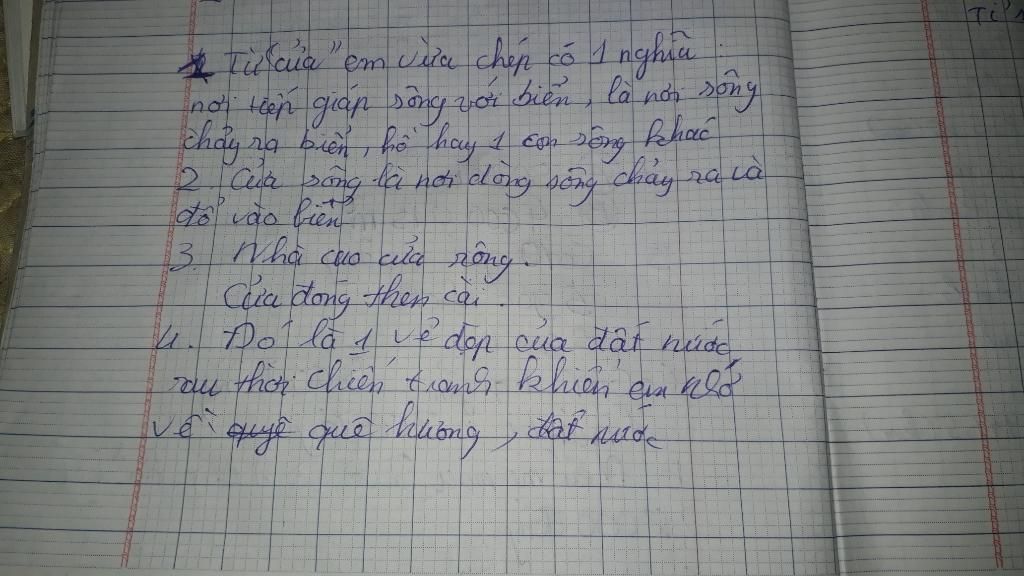 1 Từ "cửa" em vừa chép có 1 nghĩa:
nơi tiếp giáp sông với biển, là nơi sông
chảy ra biển, hồ hay 1 con sông khác
2. Cửa sông là nơi dòng sông chảy ra và
đổ vào biển
3. Nhà cao cửa rộng.
Cửa đóng then cài.
4. Đó là 1 vẻ đẹp của đất nước
sau thời chiến tranh khiến em nhớ
về quê hương, đất nước
Từ